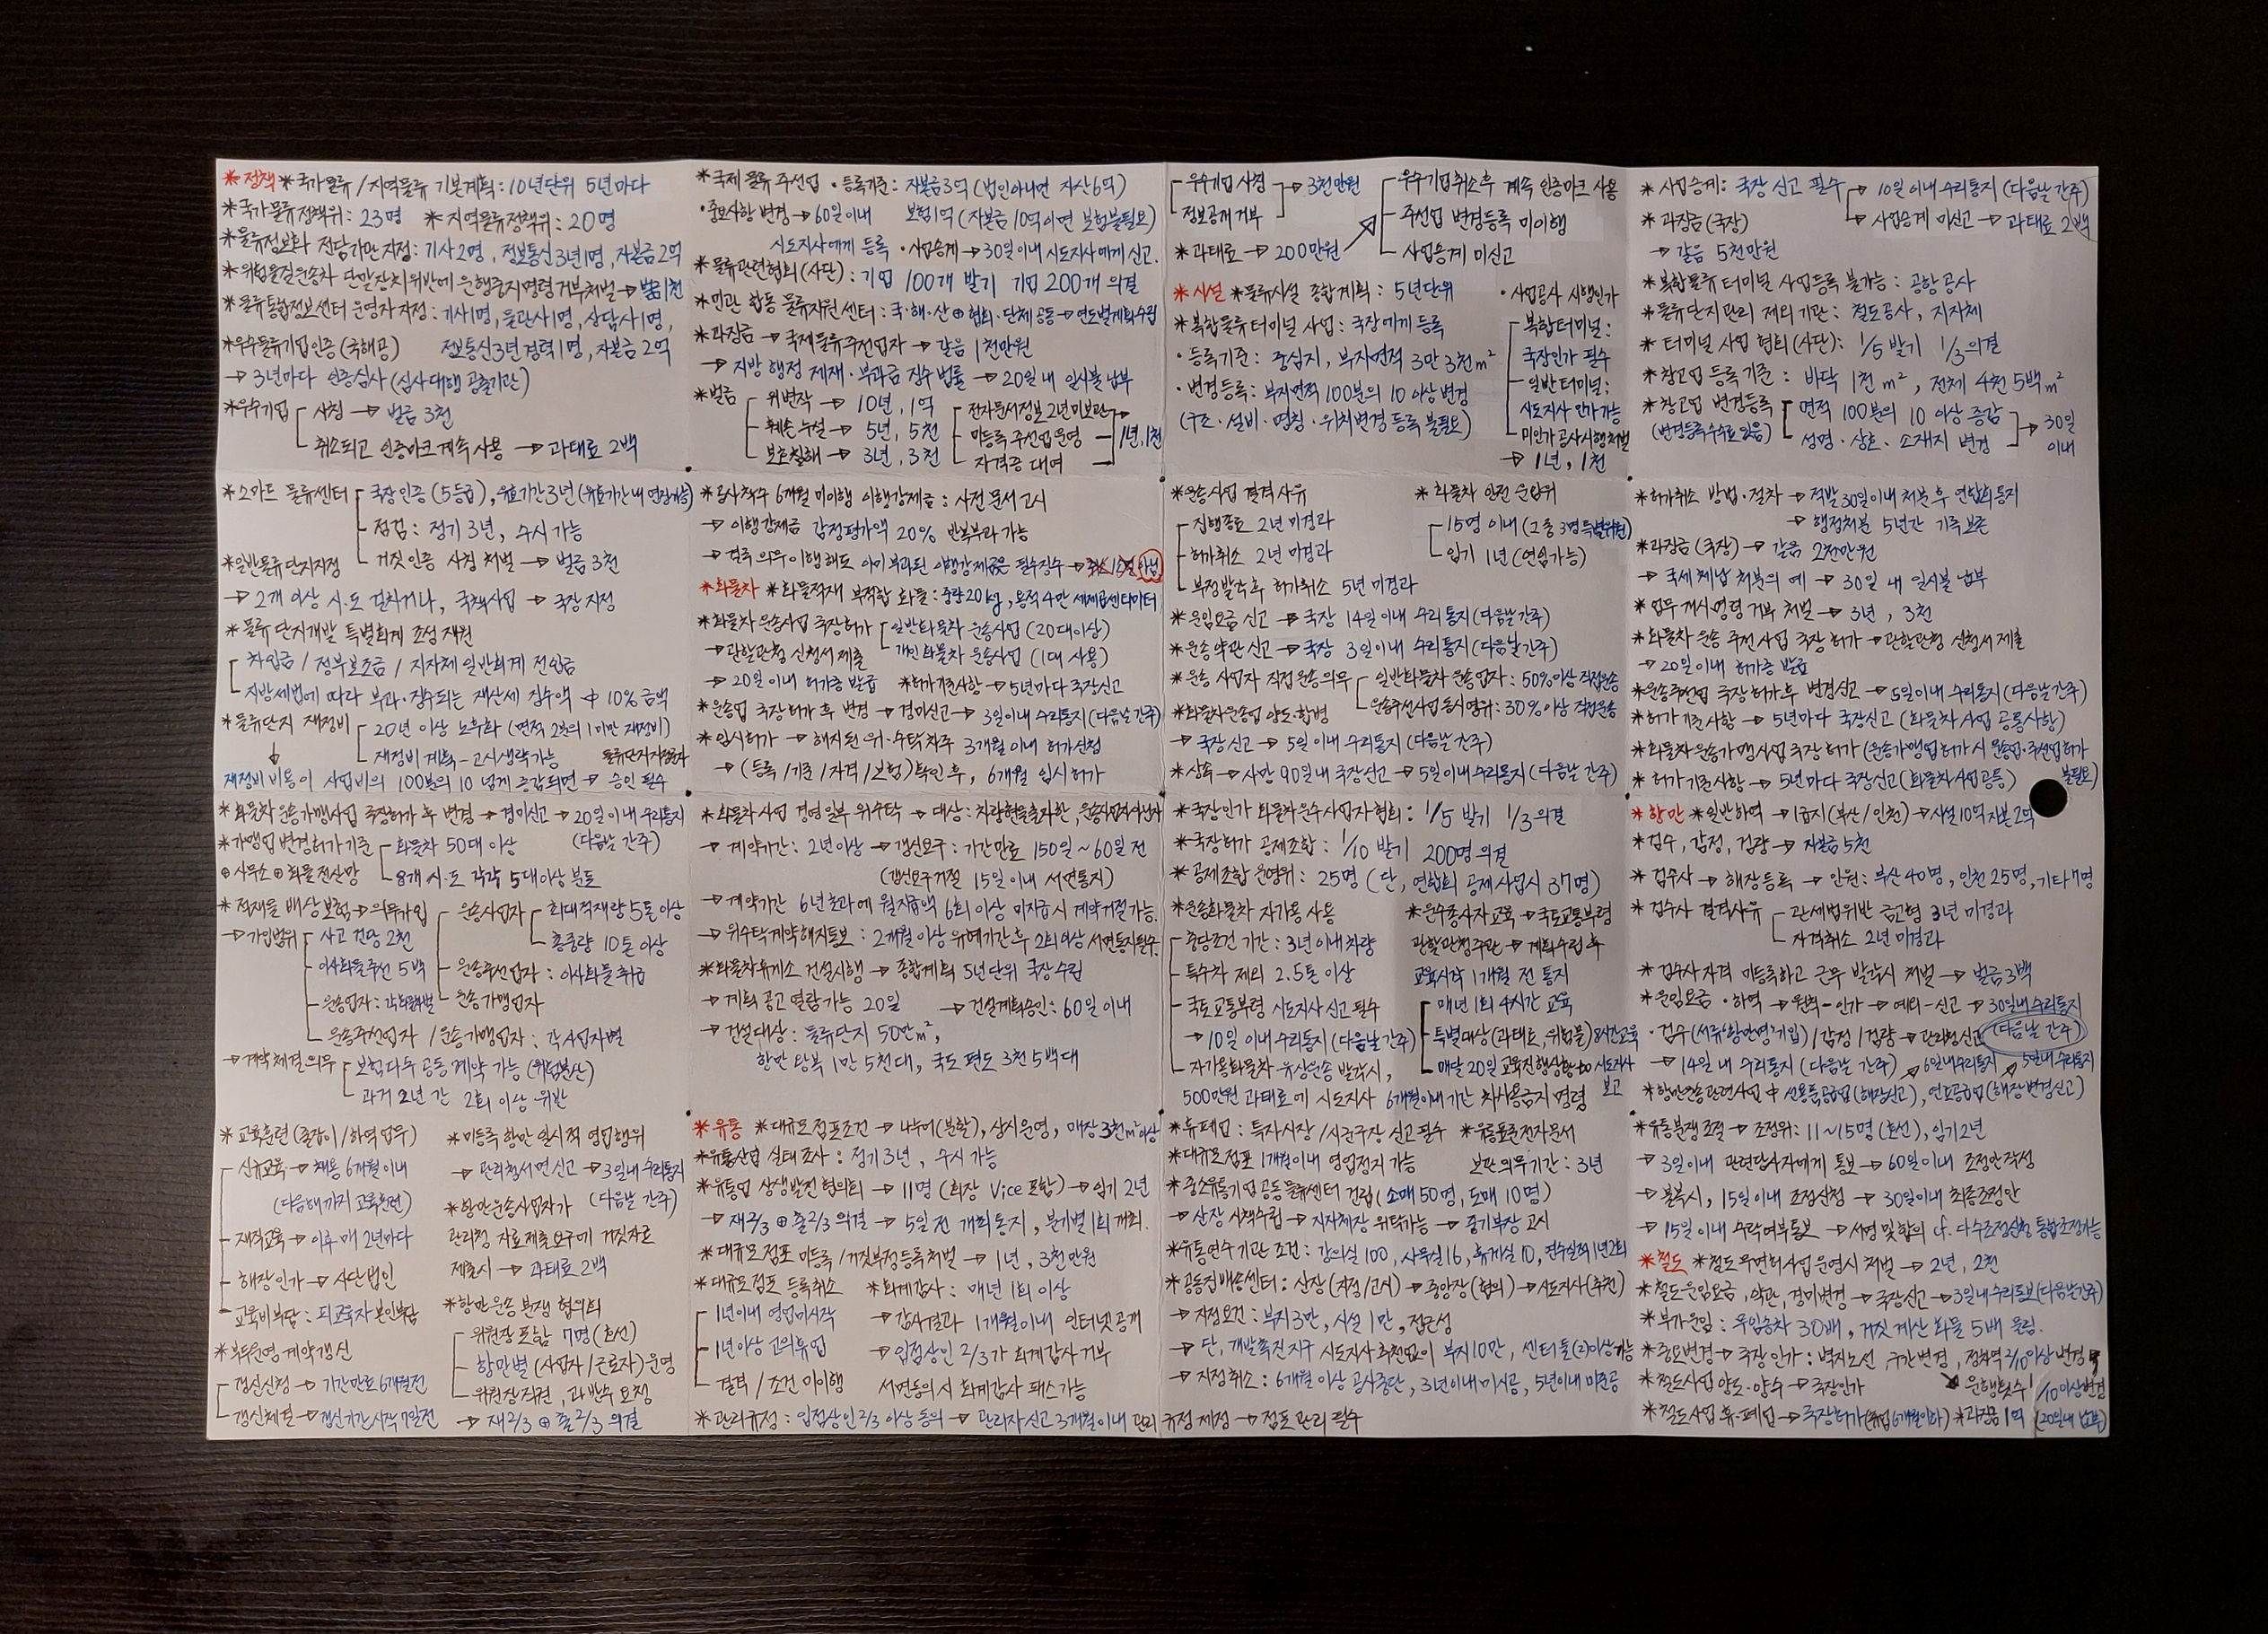 *정책 *국가물류/지역물류 기본계획: 10년단위 5년마다
*국가물류정책위: 23명 *지역물류정책위: 20명
*물류정보화 전담기관 지정: 기사2명, 정보통신3년1명, 자본금 2억
*위험물질운송차 단말장치위반에 운행중지명령거부처벌→벌금1천
*물류통합정보센터 운영자 지정: 기사1명, 물관사1명, 상담사1명,
정보통신3년경력1명, 자본금 2억
*우수물류기업인증(국해공)
→ 3년마다 인증심사(심사대행 공출기관)
*우수기업 사칭 → 벌금 3천
취소되고 인증마크 계속 사용 → 과태료 2백
*국제 물류 주선업 ・등록기준: 자본금3억 (법인아니면 자산6억)
・중요사항 변경→60일이내 보험1억(자본금 10억이면 보험불필요)
시도지사에게 등록 ・사업승계→30일이내 시도지사에게 신고.
*물류관련협회(사단): 기업 100개 발기 기업 200개 의결
*민관 합동 물류지원 센터: 국·해·산⊕협회·단체 공동→연도별계획수립
*과징금 → 국제물류주선업자 → 갈음 1천만원
→ 지방 행정 제재·부과금 징수 법률 → 20일내 일시불 납부
*벌금 위변작 → 10년, 1억
훼손 누설 → 5년, 5천
보호침해 → 3년, 3천
전자문서정보 2년미보관
미등록 주선업 운영 → 1년, 1천
자격증 대여
우수기업 사칭 → 3천만원
정보공개거부
*과태료 → 200만원
우수기업취소후 계속 인증마크 사용
주선업 변경등록 미이행
사업승계 미신고
*시설 *물류시설 종합계획: 5년단위
*복합물류터미널 사업: 국장에게 등록
・등록기준: 중심지, 부지면적 3만 3천㎡
・변경등록: 부지면적 100분의 10 이상 변경
(구조·설비·명칭·위치변경 등록 불필요)
・사업공사 시행인가
복합터미널:
국장인가 필수
일반터미널:
시도지사 인가 가능
미인가 공사시행처벌
→ 1년, 1천
*사업승계: 국장 신고 필수 → 10일이내 수리통지(다음날 간주)
→ 사업승계 미신고 → 과태료 2백
*과징금(국장)
→ 갈음 5천만원
*복합물류터미널 사업등록 불가능: 공항공사
*물류단지관리 제외기관: 철도공사, 지자체
*터미널 사업 협회(사단): 1/5 발기 1/3의결
*창고업 등록 기준: 바닥 1천㎡, 전체 4천 5백㎡
*창고업 변경등록 면적 100분의 10 이상 증감
(변경등록수수료 있음) 성명·상호·소재지 변경 → 30일
이내
*스마트 물류센터 국장인증(5등급), 유효기간3년(유효기간내 연장가능)
점검: 정기 3년, 수시 가능
거짓 인증 사칭 처벌 → 벌금 3천
*일반물류단지지정
→ 2개 이상 시·도 걸치거나, 국책사업 → 국장 지정
*물류 단지개발 특별회계 조성 재원
차입금/정부보조금/지자체 일반회계 전입금
지방세법에 따라 부과·징수되는 재산세 징수액 中 10% 금액
*물류단지 재정비 20년 이상 노후화 (면적 2분의 1미만 재정비)
재정비 계획-고시생략가능
재정비 비용이 사업비의 100분의 10 넘게 증감되면 → 승인 필수
*공사착수 6개월 미이행 이행강제금: 사전 문서 고시
→ 이행강제금 감정평가액 20% 반복부과 가능
→ 결국 의무이행해도 이미 부과된 이행강제금은 필수징수
*화물차 *화물적재 부적합 화물: 중량20kg, 용적 4만 세제곱센티미터
*화물차 운송사업 국장허가 일반화물차 운송사업 (20대이상)
→관할관청 신청서 제출 개인화물차 운송사업 (1대 사용)
→ 20일이내 허가증 발급 *허가기준사항→5년마다 국장신고
*운송업 국장허가 후 변경→경미신고→3일이내 수리통지(다음날 간주)
*임시허가 → 해지된 위·수탁차주 3개월 이내 허가신청
→(등록/기준/자격/보험)확인 후, 6개월 임시허가
*운송사업 결격 사유
집행종료 2년 미경과
허가취소 2년 미경과
부정발각 후 허가취소 5년 미경과
*화물차 안전 운임위
15명 이내 (그 중 3명 특별위원)
임기 1년(연임가능)
*운임요금 신고→국장 14일이내 수리통지(다음날간주)
*운송약관 신고→국장 3일이내 수리통지(다음날간주)
*운송 사업자 직접운송의무 일반화물차 운송업자: 50%이상 직접운송
운송주선사업 동시영위: 30%이상 직접운송
*화물차운송업 양도·합병
→ 국장신고→ 5일이내 수리통지 (다음날 간주)
*상속 → 사망 90일내 국장신고→5일이내수리통지(다음날 간주)
*허가취소 방법·절차→적발 30일이내 처분 후 연합회통지
→ 행정처분 5년간 기록보존
*과징금(국장)→갈음 2천만원
→ 국세체납 처분의 예→30일 내 일시불 납부
*업무개시명령 거부 처벌→ 3년, 3천
*화물차 운송 주선사업 국장 허가→관할관청 신청서 제출
→ 20일이내 허가증 발급
*운송주선업 국장 허가후 변경신고→5일이내수리통지(다음날간주)
*허가기준사항→ 5년마다 국장신고(화물차사업 공통사항)
*화물차운송가맹사업 국장 허가(운송가맹업허가시 운송업·주선업허가
불필요)
*허가기준사항→ 5년마다 국장신고(화물차사업공통)
*화물차 운송가맹사업 국장허가 후 변경→경미신고→20일이내수리통지
(다음날 간주)
*가맹업 변경허가 기준 화물차 50대 이상
⊕사무소⊕화물전산망 8개 시·도 각각 5대이상 분포
*적재물 배상보험→의무가입 운송사업자 최대적재량 5톤 이상
총중량 10톤 이상
운송주선업자: 이사화물 취급
운송가맹업자
→가입범위 사고 건당 2천
이사화물주선 5백
운송업자: 각화물차별
운송주선업자/운송가맹업자: 각사업자별
→계약체결의무 보험다수 공동 계약 가능 (위험분산)
과거 2년 간 2회 이상 위반
*화물차사업 경영일부 위수탁 → 대상: 차량현물출자한,
→ 계약기간: 2년이상→갱신요구: 기간만료 150일~60일 전
(갱신요구거절 15일이내 서면통지)
→ 계약기간 6년초과에 월지급액 6회 이상 미지급시 계약거절가능.
→ 위수탁계약해지통보: 2개월이상 유예기간후 2회이상 서면통지필수.
*화물차휴게소 건설시행→종합계획 5년단위 국장수립
→ 계획 공고 열람가능 20일 → 건설계획승인: 60일 이내
→ 건설대상: 물류단지 50만㎡,
항만 왕복 1만 5천대, 국도 편도 3천 5백대
*국장인가 화물차운수사업자협회: 1/5 발기 1/3의결
*국장허가 공제조합: 1/10 발기 200명 의결
*공제조합 운영위: 25명 (단, 연합회 공제사업시 37명)
*운송화물차 자가용 사용
충당조건 기간: 3년 이내차량
특수차 제외 2.5톤 이상
국토교통부령 시도지사 신고 필수
→ 10일 이내수리통지(다음날간주)
자가용화물차 유상운송 발각시,
500만원 과태료에 시도지사 6개월이내기간 차사용금지 명령
*운수종사자교육→국토교통부령
관할관청주관→계획수립 후
교육시작 1개월 전 통지
매년 1회 4시간 교육
특별대상(과태료, 위험물)8시간교육
매달 20일 교육진행상황to 시도지사
보고
*항만 *일반하역→1급지(부산/인천)→시설10억 자본2억
*검수, 감정, 검량→자본금 5천
*검수사→해장등록→인원: 부산 40명, 인천 25명, 기타 7명
*검수사 결격사유 관세법위반 금고형 3년 미경과
자격취소 2년 미경과
*검수사 자격 미등록하고 근무 발각시 처벌→벌금 3백
*운임요금 ・하역→원칙-인가→예외-신고→30일내수리통지
(다음날 간주)
・검수(서류'항만명'기입)/감정/검량→관리청신고
→ 14일 내 수리통지 (다음날 간주) 6일내수리통지 5일내수리통지
*항만운송관련사업 中 선용품공급업(해장신고), 연료공급업(해장변경신고)
*교육훈련 (줄잡이/하역업무)
신규교육→채용 6개월 이내
(다음해까지 교육훈련)
재직교육→이후 매 2년마다
해장인가→사단법인
교육비부담: 피교육자본인부담
*부두운영계약갱신
갱신신청→기간만료6개월전
갱신체결→갱신기간시작 7일전
*미등록 항만 일시적 영업행위
→관리청서면신고→3일내수리통지
(다음날 간주)
*항만운송사업자가
관리청 자료제출요구에 거짓자료
제출시→과태료 2백
*항만운송 분쟁 협의회
위원장 포함 7명 (호선)
항만별 (사업자/근로자)운영
위원장직권, 과반수 요청
→ 재2/3⊕출2/3 의결
*유통 *대규모점포조건→나누어(분할), 상시운영, 매장3천㎡이상
*유통산업 실태조사: 정기 3년, 수시 가능
*유통업 상생발전 협의회→11명 (회장 Vice 포함)→임기 2년
→ 재2/3⊕출2/3의결→5일전 개회통지, 분기별 1회 개회.
*대규모점포 미등록/거짓부정등록처벌→ 1년, 3천만원
*대규모점포 등록취소
1년이내 영업미시작
1년이상 고의휴업
결격/조건 미이행
*회계감사: 매년 1회 이상
→감사결과 1개월이내 인터넷 공개
→입점상인 2/3가 회계감사 거부
서면동의시 회계감사 패스가능
*관리규정: 입점상인 2/3 이상 동의→관리자신고 3개월이내 관리 규정 제정→점포관리 필수
*휴폐업: 특자시장/시군구장 신고 필수 *유통표준전자문서
보관의무기간: 3년
*대규모점포 1개월이내 영업정지 가능
*중소유통기업공동물류센터 건립(소매50명, 도매 10명)
→산장 시책수립→지자체장 위탁가능→중기부장 고시
*유통연수기관 조건: 강의실 100, 사무실16, 휴게실 10, 연수실적1년2회
*공동집배송센터: 산장(지정/고시)→중앙장(협의)→시도지사(추천)
→지정요건: 부지3만, 시설 1만, 접근성
→ 단, 개발촉진지구 시도지사추천없이 부지10만, 센터 둘(2)이상가능
→ 지정취소: 6개월 이상 공사중단, 3년이내 미시공, 5년이내 미준공
*유통분쟁조정→조정위: 11~15명(호선), 임기2년
→ 3일이내 관련당사자에게 통보→60일이내 조정안작성
→ 불복시, 15일이내 조정신청→30일이내 최종조정안
→ 15일이내 수락여부통보→서명 및 합의 cf. 다수조정신청 통합조정가능
*철도 *철도무면허사업운영시 처벌→2년, 2천
*철도운임요금, 약관, 경미변경→국장신고→3일내수리통보(다음날간주)
*부가운임: 무임승차 30배, 거짓 계산 화물 5배 물림.
*중요변경→국장 인가: 벽지노선, 구간변경, 정차역 2/10이상변경
운행횟수 1/10이상변경
*철도사업 양도·양수→국장인가
*철도사업 휴·폐업→국장허가(휴업6개월이하) *과징금 1억 (20일내 납부)